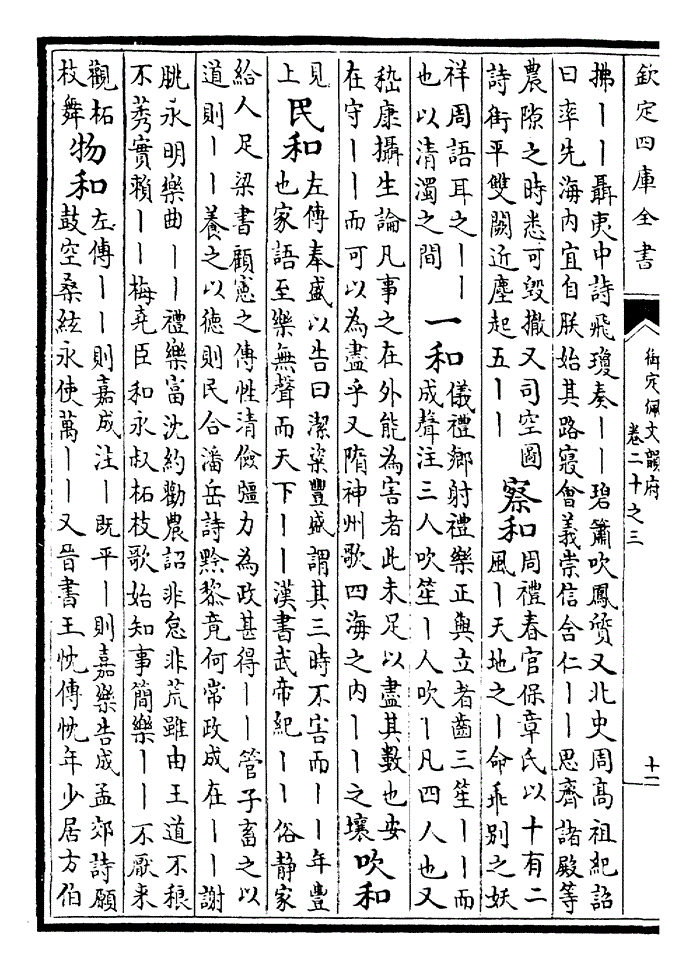 欽定四庫全書
御定佩文韻府
卷二十之三
十二
拂丨丨聶夷中詩飛瓊奏丨丨碧簫吹鳳質又北史周高祖紀詔
曰率先海内宜自朕始其路寢會義崇信含仁丨丨思齊諸殿等
農隙之時悉可毁撤又司空圖
詩衙平雙闕近塵起五丨丨
察和
周禮春官保章氏以十有二
風丨天地之丨命乖别之妖
祥周語耳之丨丨
也以清濁之間
一和
儀禮鄉射禮樂正與立者齒三笙丨丨而
成聲注三人吹笙丨人吹丨凡四人也又
嵇康攝生論凡事之在外能為害者此未足以盡其數也安
在守丨丨而可以為盡乎又隋神州歌四海之内丨丨之壤
吹和
見
上
民和
左傳奉盛以告曰潔粢豐盛謂其三時不害而丨丨年豐
也家語至樂無聲而天下丨丨漢書武帝紀丨丨俗静家
給人足梁書顧憲之傳性清儉彊力為政甚得丨丨管子畜之以
道則丨丨養之以德則民合潘岳詩黔黎竟何常政成在丨丨謝
朓永明樂曲丨丨禮樂富沈約勸農詔非怠非荒雖由王道不稂
不莠實賴丨丨梅堯臣和永叔柘枝歌始知事簡樂丨丨不厭来
觀柘
枝舞
物和
左傳丨丨則嘉成注丨既平丨則嘉樂告成孟郊詩願
鼓空桑絃永使萬丨丨又晉書王忱傳忱年少居方伯